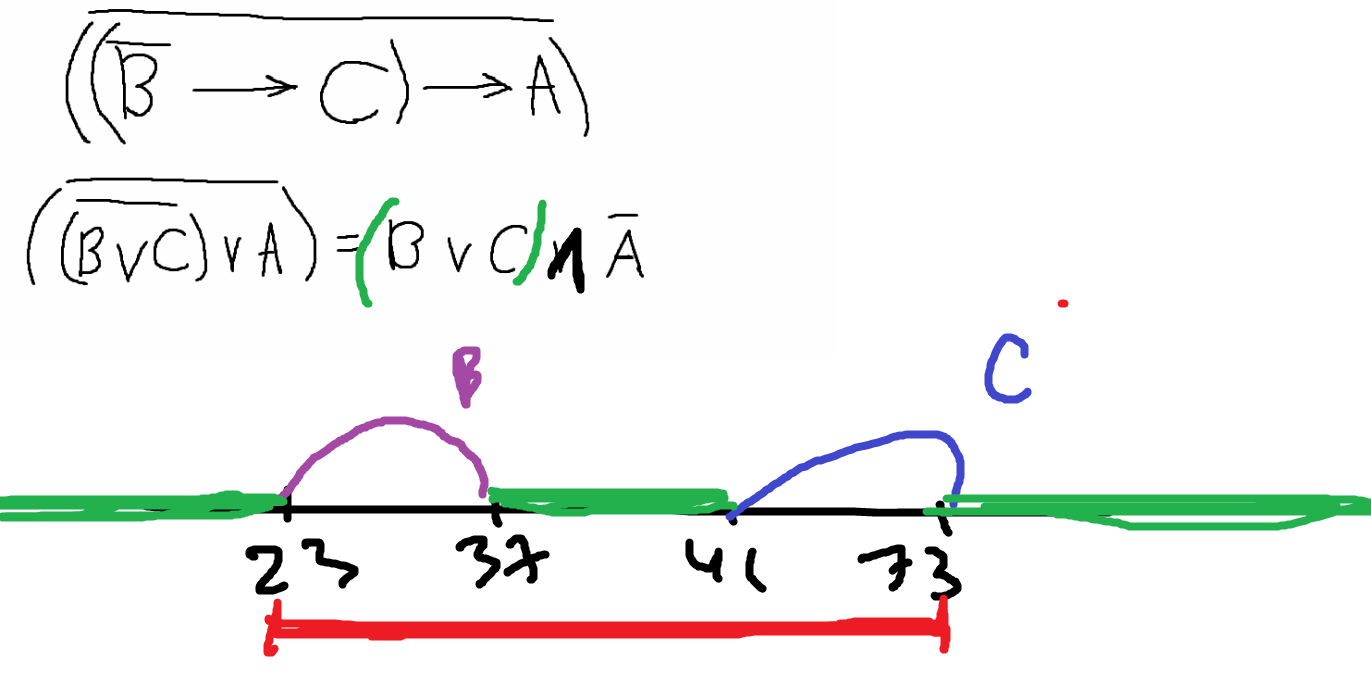 ((B̅ → C) → A)̅
((B∨C)̅ ∨ A)̅ = (B ∨ C) ∧ A̅
B
C
23 37 41 73